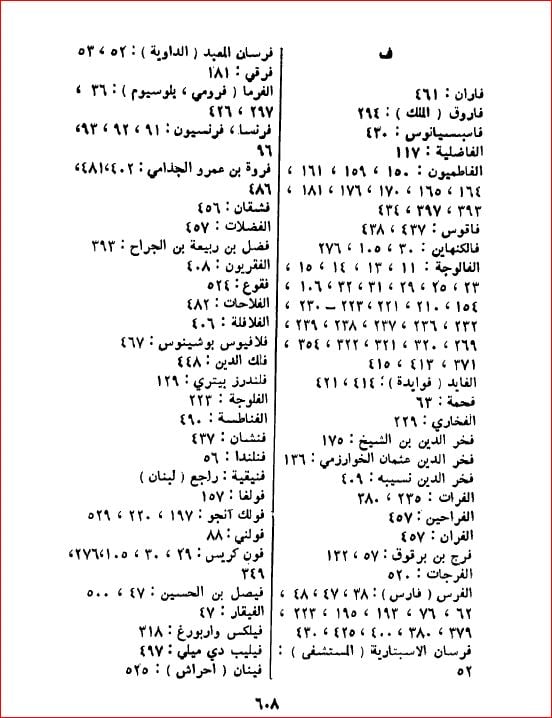 ف
فاران : ٤٦١
فاروق ( الملك ) : ٢٩٤
فاسبسيانوس : ٤٣٠
الفاضلية : ١١٧
الفاطميون : ١٥٠ ، ١٥٩ ، ١٦١ ،
١٦٤ ، ١٦٥ ، ١٧٠ ، ١٧٦ ، ١٨١ ،
٣٩٣ ، ٣٩٧ ، ٤٣٤
فاقوس : ٤٣٧ ، ٤٣٨
فالكنهاين : ٣٠ ، ١٠٥ ، ٢٧٦
الفالوجة : ١١ ، ١٣ ، ١٤ ، ١٥ ،
٢٣ ، ٢٥ ، ٢٩ ، ٣١ ، ٣٢ ، ١٠٦ ،
١٥٤ ، ٢١٠ ، ٢٢١ ، ٢٢٣ – ٢٣٠ ،
٢٣٢ ، ٢٣٦ ، ٢٣٧ ، ٢٣٨ ، ٢٣٩ ،
٢٦٩ ، ٣٢٠ ، ٣٢١ ، ٣٢٢ ، ٣٥٤ ،
٣٧١ ، ٤١٣ ، ٤١٥
الفايد ( فوايدة ) : ٤١٤ ، ٤٢١
فحمة : ٦٣
الفخاري : ٢٢٩
فخر الدين بن الشيخ : ١٧٥
فخر الدين عثمان الخوارزمي : ١٣٦
فخر الدين نسيبه : ٤٠٩
الفرات : ٢٣٥ ، ٣٨٠
الفراحين : ٤٥٧
الفران : ٤٥٧
فرج بن برقوق : ٥٧ ، ١٣٢
الفرجات : ٥٢٠
الفرس ( فارس ) : ٣٨ ، ٤٧ ، ٤٨ ،
٦٢ ، ٧٦ ، ١٩٣ ، ١٩٥ ، ٢٢٣ ،
٣٧٩ ، ٣٨٠ ، ٤٠٠ ، ٤٢٥ ، ٤٣٠
فرسان الاسبتارية ( المستشفى ) :
٥٢
فرسان المعبد ( الداوية ) : ٥٢ ، ٥٣
فرقي : ١٨١
الفرما ( فرومي ، بلوسيوم ) : ٣٦ ،
٢٩٧ ، ٤٢٦
فرنسا ، فرنسيون : ٩١ ، ٩٢ ، ٩٣ ،
٩٦
فروة بن عمرو الجذامي : ٤٠٢ ، ٤٨١ ،
٤٨٦
فشقان : ٤٥٦
الفضلات : ٤٥٧
فضل بن ربيعة بن الجراح : ٣٩٣
الفقريون : ٤٠٨
فقوع : ٥٢٤
الفلاحات : ٤٨٢
الفلافلة : ٤٠٦
فلافيوس بوشينوس : ٤٦٧
فلك الدين : ٤٤٨
فلندرز بيتري : ١٢٩
الفلوجة : ٢٢٣
الفناطسة : ٤٩٠
فنشان : ٤٣٧
فنلندا : ٥٦
فنيقية : راجع ( لبنان )
فولغا : ١٥٧
فولك آنجو : ١٩٧ ، ٢٢٠ ، ٥٢٩
فولني : ٨٨
فون كريس : ٢٩ ، ٣٠ ، ١٠٥ ، ٢٧٦ ،
٣٤٩
فيصل بن الحسين : ٤٧ ، ٥٠٠
الفيقار : ٤٧
فيلكس واربورغ : ٣١٨
فيليب دي ميلي : ٤٩٧
فينان ( أحراش ) : ٥٢٥
٦٠٨